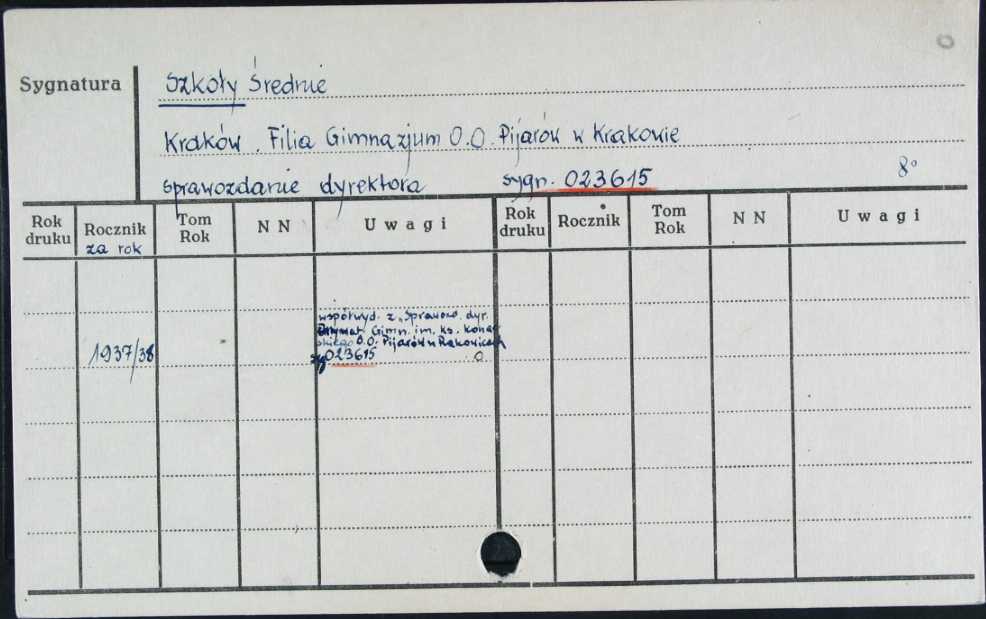 Sygnatura
Szkoły Średnie
Kraków. Filia Gimnazjum O.O. Pijarów w Krakowie
sprawozdanie dyrektora sygn. 023615 8°
Rok druku Rocznik za rok Tom Rok N N U w a g i Rok druku Rocznik Tom Rok N N U w a g i
współwyd. z „Sprawozd. dyr.
Prywat. Gimn. im. ks. Konar-
skiego O.O. Pijarów w Rakowicach
1937/38 sy 023615